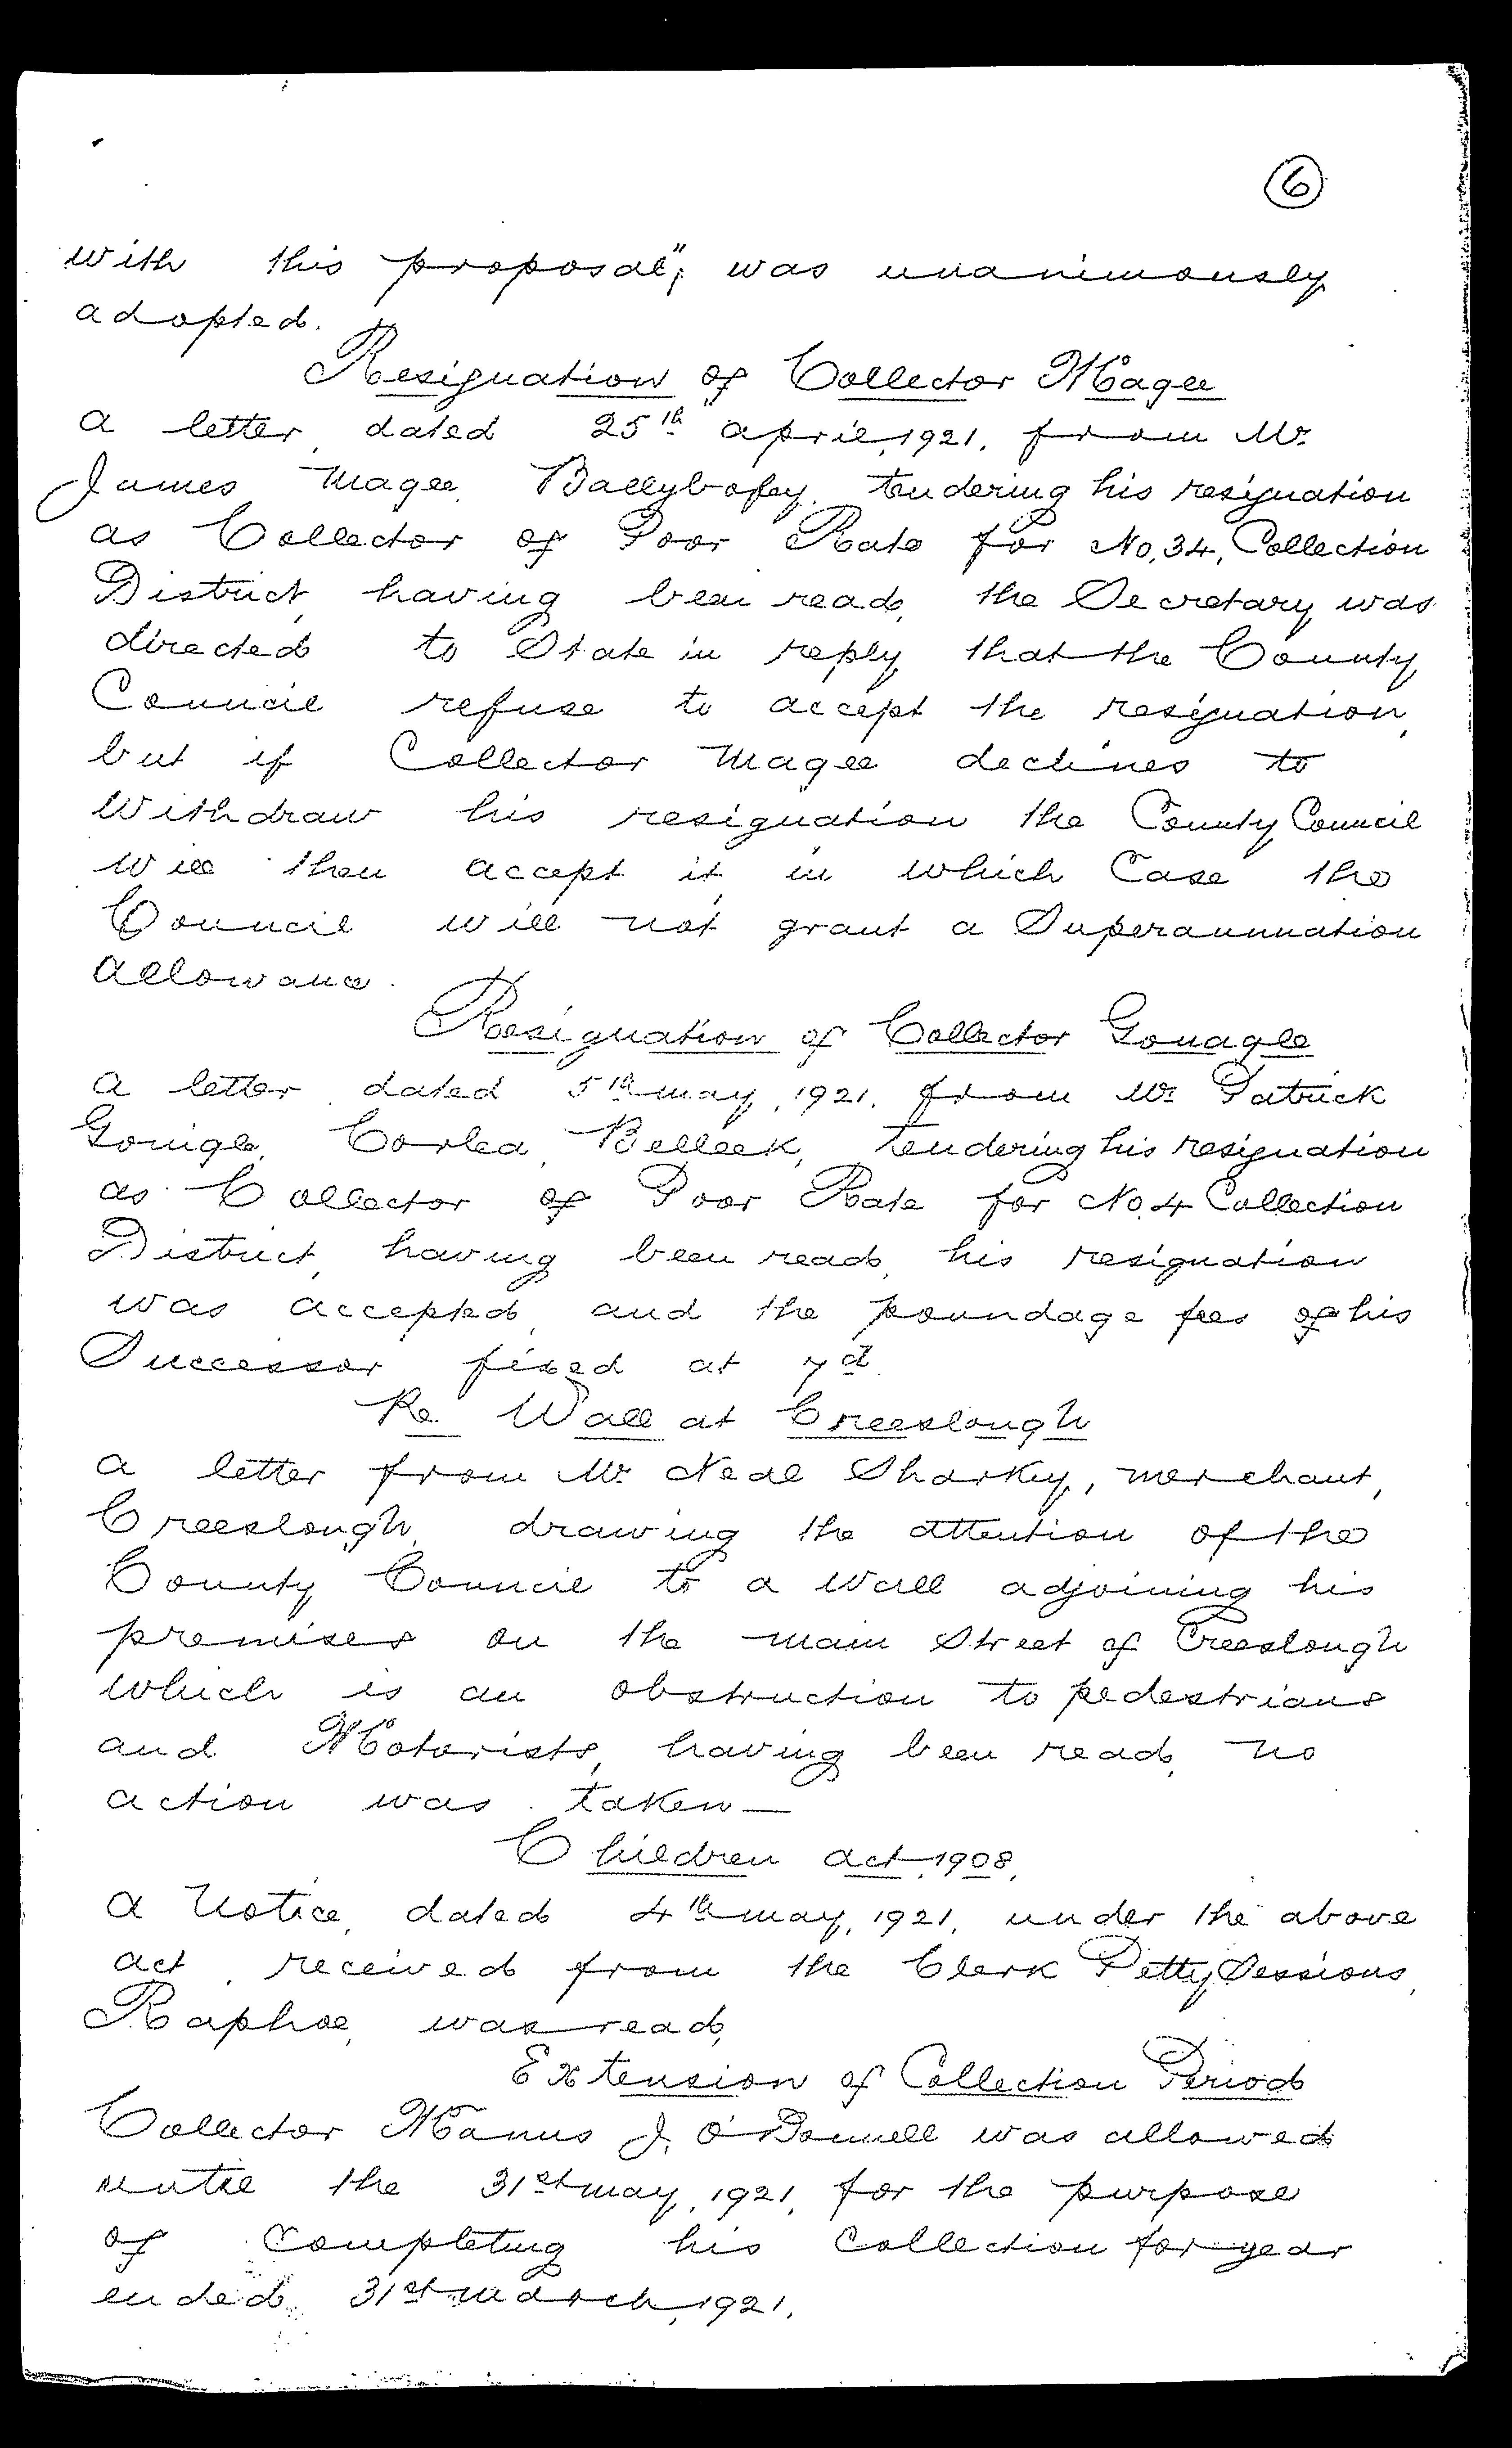 6
with this proposal", was unanimously
adopted.
Resignation of Collector Magee
a letter, dated 25th april, 1921, from Mr.
James Magee, Ballybofey, tendering his resignation
as Collector of Poor Rate for No. 34, Collection
District, having been read, the Secretary was
directed to State in reply that the County
Council refuse to accept the resignation,
but if Collector Magee declines to
withdraw his resignation the County Council
will then accept it, in which Case the
Council will not grant a Superannuation
allowance.
Resignation of Collector Gonagle
a letter, dated 5th may, 1921, from Mr. Patrick
Gonigle, Corlea, Belleek, tendering his resignation
as Collector of Poor Rate for No. 4 Collection
District, having been read, his resignation
was accepted, and the poundage fees of his
Successor fixed at 7d.
Re Wall at Creeslough
a letter from Mr. Neal Sharkey, merchant,
Creeslough, drawing the attention of the
County Council to a Wall adjoining his
premises on the main Street of Creeslough
which is an obstruction to pedestrians
and Motorists, having been read, no
action was taken—
Children act, 1908,
a Notice, dated 4th may, 1921, under the above
act, received from the Clerk Petty Sessions,
Raphoe, was read,
Extension of Collection Period
Collector Manus J. O'Donnell was allowed
until the 31st may, 1921, for the purpose
of Completing his Collection for year
ended 31st march, 1921.